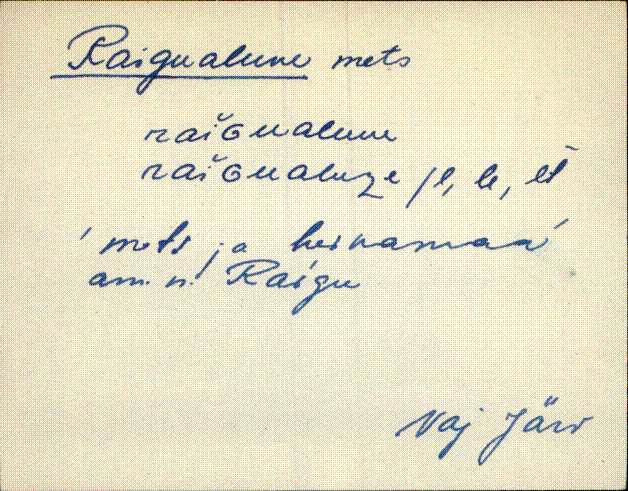 Raigualune mets
raiGualune
raiGualuze /l, le, lt
'mets ja heinamaa'
am. n. Raigu
Vaj Järv